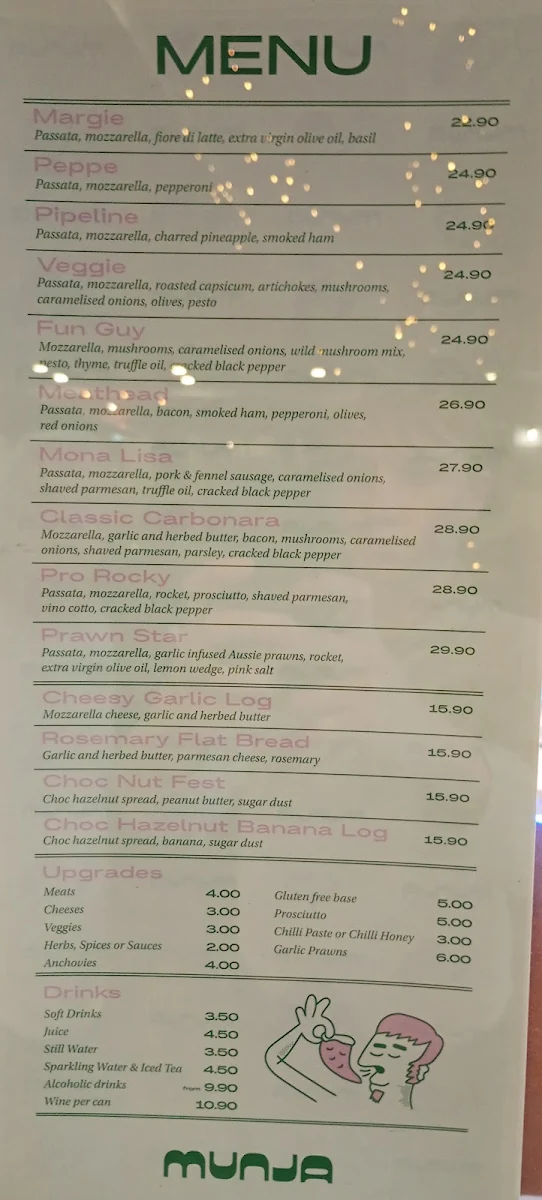 MENU
Margie 22.90
Passata, mozzarella, fiore di latte, extra virgin olive oil, basil
Peppe 24.90
Passata, mozzarella, pepperoni
Pipeline 24.90
Passata, mozzarella, charred pineapple, smoked ham
Veggie 24.90
Passata, mozzarella, roasted capsicum, artichokes, mushrooms,
caramelised onions, olives, pesto
Fun Guy 24.90
Mozzarella, mushrooms, caramelised onions, wild mushroom mix,
pesto, thyme, truffle oil, cracked black pepper
Meathead 26.90
Passata, mozzarella, bacon, smoked ham, pepperoni, olives,
red onions
Mona Lisa 27.90
Passata, mozzarella, pork & fennel sausage, caramelised onions,
shaved parmesan, truffle oil, cracked black pepper
Classic Carbonara 28.90
Mozzarella, garlic and herbed butter, bacon, mushrooms, caramelised
onions, shaved parmesan, parsley, cracked black pepper
Pro Rocky 28.90
Passata, mozzarella, rocket, prosciutto, shaved parmesan,
vino cotto, cracked black pepper
Prawn Star 29.90
Passata, mozzarella, garlic infused Aussie prawns, rocket,
extra virgin olive oil, lemon wedge, pink salt
Cheesy Garlic Log 15.90
Mozzarella cheese, garlic and herbed butter
Rosemary Flat Bread 15.90
Garlic and herbed butter, parmesan cheese, rosemary
Choc Nut Fest 15.90
Choc hazelnut spread, peanut butter, sugar dust
Choc Hazelnut Banana Log 15.90
Choc hazelnut spread, banana, sugar dust
Upgrades
Meats 4.00
Cheeses 3.00
Veggies 3.00
Herbs, Spices or Sauces 2.00
Anchovies 4.00
Gluten free base 5.00
Prosciutto 5.00
Chilli Paste or Chilli Honey 3.00
Garlic Prawns 6.00
Drinks
Soft Drinks 3.50
Juice 4.50
Still Water 3.50
Sparkling Water & Iced Tea 4.50
Alcoholic drinks from 9.90
Wine per can 10.90
MUNJA